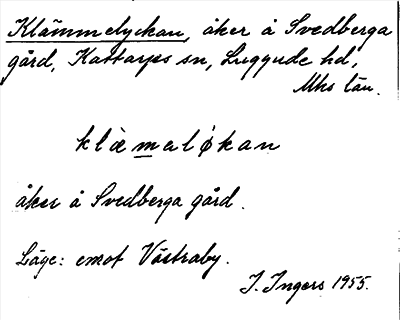 Klämmelyckan, åker å Svedberga
gård, Kattarps sn, Luggude hd,
Mhs län.
klæ̀maløkan
åker å Svedberga gård.
Läge: emot Västraby.
I. Ingers 1955.